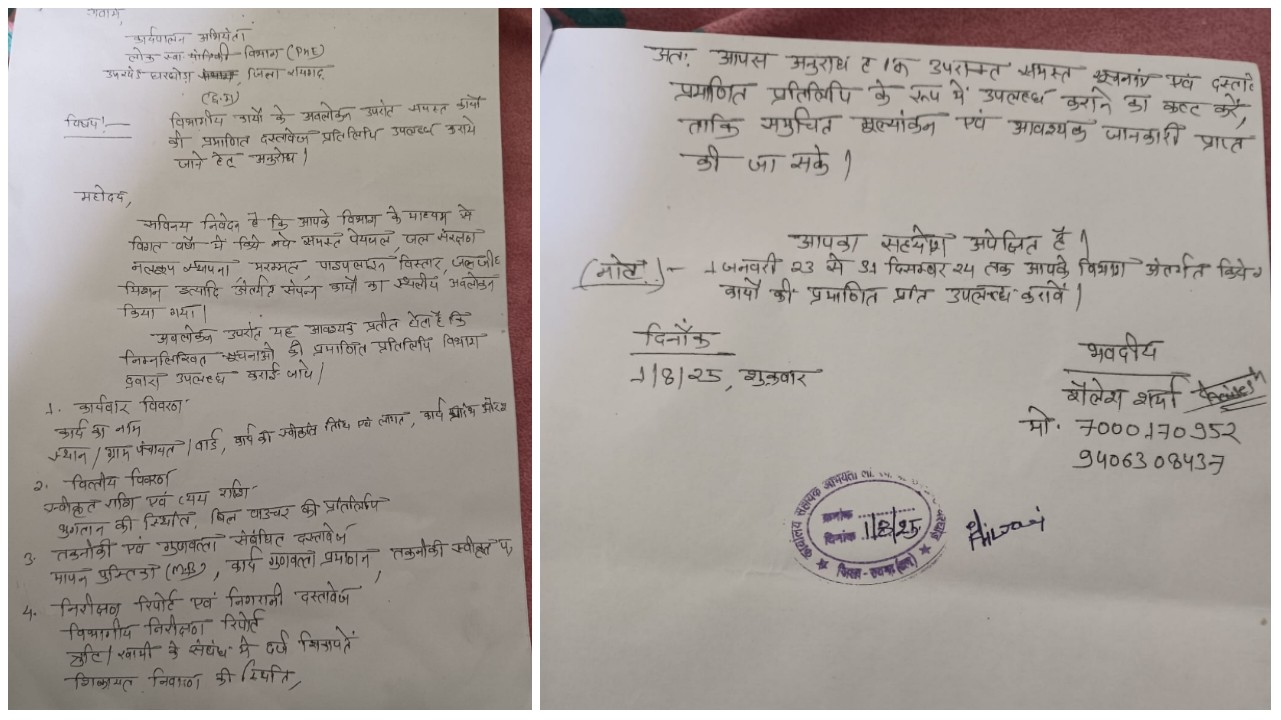 कार्यपालन अभियंता
लोक स्वा. यांत्रिकी विभाग (PHE)
उपखंड घरघोड़ा, जिला रायगढ़
(छ.ग)
विषय!— विभागीय कार्यों के अवलोकन उपरांत समस्त कार्यों
की प्रमाणित दस्तावेज प्रतिलिपि उपलब्ध कराये
जाने हेतु अनुरोध।
महोदय,
सविनय निवेदन है कि आपके विभाग के माध्यम से
विगत वर्षों में किये गये समस्त पेयजल, जल संरक्षण
नलकूप स्थापना, मरम्मत, पाइपलाइन विस्तार, जल जीवन
मिशन इत्यादि अंतर्गत संपन्न कार्यों का स्थलीय अवलोकन
किया गया।
अवलोकन उपरांत यह आवश्यक प्रतीत होता है कि
निम्नलिखित सूचनाओं की प्रमाणित प्रतिलिपि विभाग
द्वारा उपलब्ध कराई जाये।
1. कार्यवार विवरण
कार्य का नाम
स्थान / ग्राम पंचायत / वार्ड, कार्य की स्वीकृत तिथि एवं लागत, कार्य प्रारंभ और
2. वित्तीय विवरण
स्वीकृत राशि एवं व्यय राशि
भुगतान की स्थिति, बिल वाउचर की प्रतिलिपि
3. तकनीकी एवं गुणवत्ता संबंधित दस्तावेज
मापन पुस्तिका (MB), कार्य गुणवत्ता प्रमाण, तकनीकी स्वीकृत प,
4. निरीक्षण रिपोर्ट एवं निगरानी दस्तावेज
विभागीय निरीक्षण रिपोर्ट
त्रुटि / खामी के संबंध में दर्ज शिकायतें
शिकायत निवारण की स्थिति,
अतः आपसे अनुरोध है कि उपरोक्त समस्त सूचनाएं एवं दस्तावेज
प्रमाणित प्रतिलिपि के रूप में उपलब्ध कराने का कष्ट करें,
ताकि समुचित मूल्यांकन एवं आवश्यक जानकारी प्राप्त
की जा सके।
आपका सहयोग अपेक्षित है।
(नोट!)- 1 जनवरी 23 से 31 दिसम्बर 24 तक आपके विभाग अंतर्गत किये
कार्यों की प्रमाणित प्रति उपलब्ध करावें।
दिनाँक
1/8/25, शुक्रवार
भवदीय
शैलेश शर्मा
मो. 7000170952
9406308437
कार्यालय सहायक अभियंता
क्रमांक
दिनांक 1/8/25